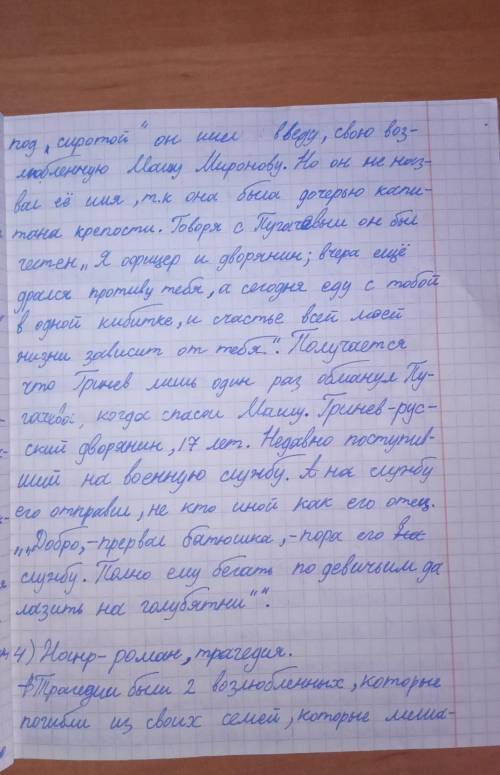 под „сиротой“ он имел введу, свою воз-
любленную Машу Миронову. Но он не наз-
вал её имя, т.к она была дочерью капи-
тана крепости. Говоря с Пугачёвым он был
честен „Я офицер и дворянин; вчера ещё
дрался противу тебя, а сегодня еду с тобой
в одной кибитке, и счастье всей моей
жизни зависит от тебя“. Получается
что Гринев лишь один раз обманул Пу-
гачёва, когда спасал Машу. Гринев-рус-
ский дворянин, 17 лет. Недавно поступив-
ший на военную службу. А на службу
его отправил, не кто иной как его отец.
„„Добро,-прервал батюшка,-пора его на
службу. Полно ему бегать по девичьим да
лазить на голубятни““.
4) Жанр-роман, трагедия.
Трагедии были 2 возлюбленных, которые
погибли из своих семей, которые меша-